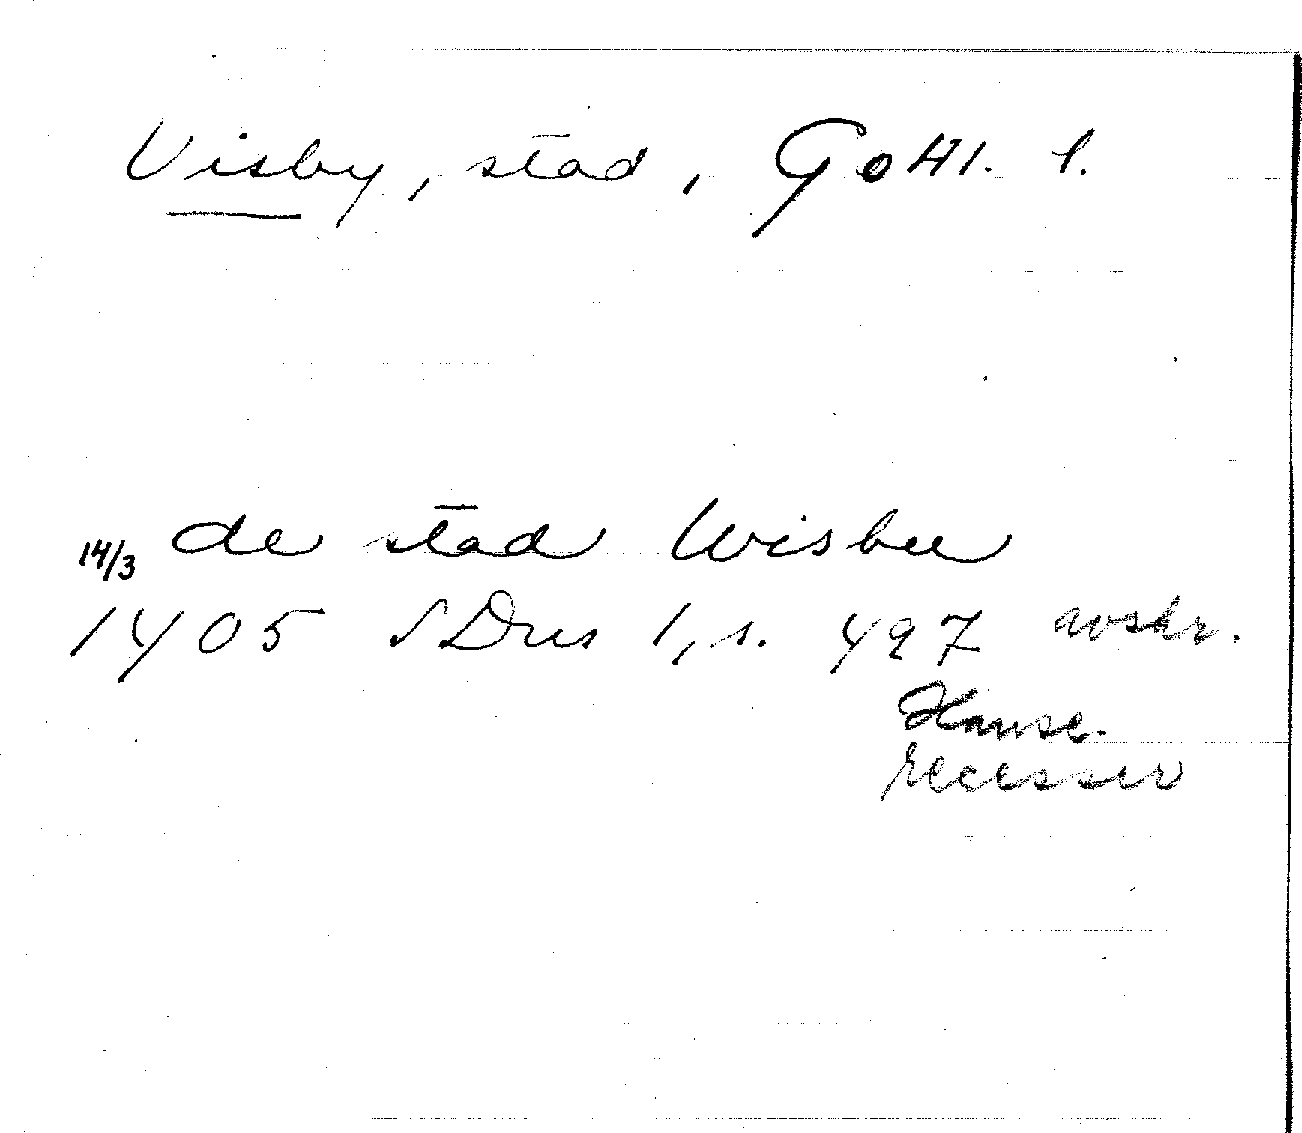 Visby, stad, Gotl. l.
14/3 de stad Wisbu
1405 SDns 1, s. 497 avskr.
Hanse-
recesser